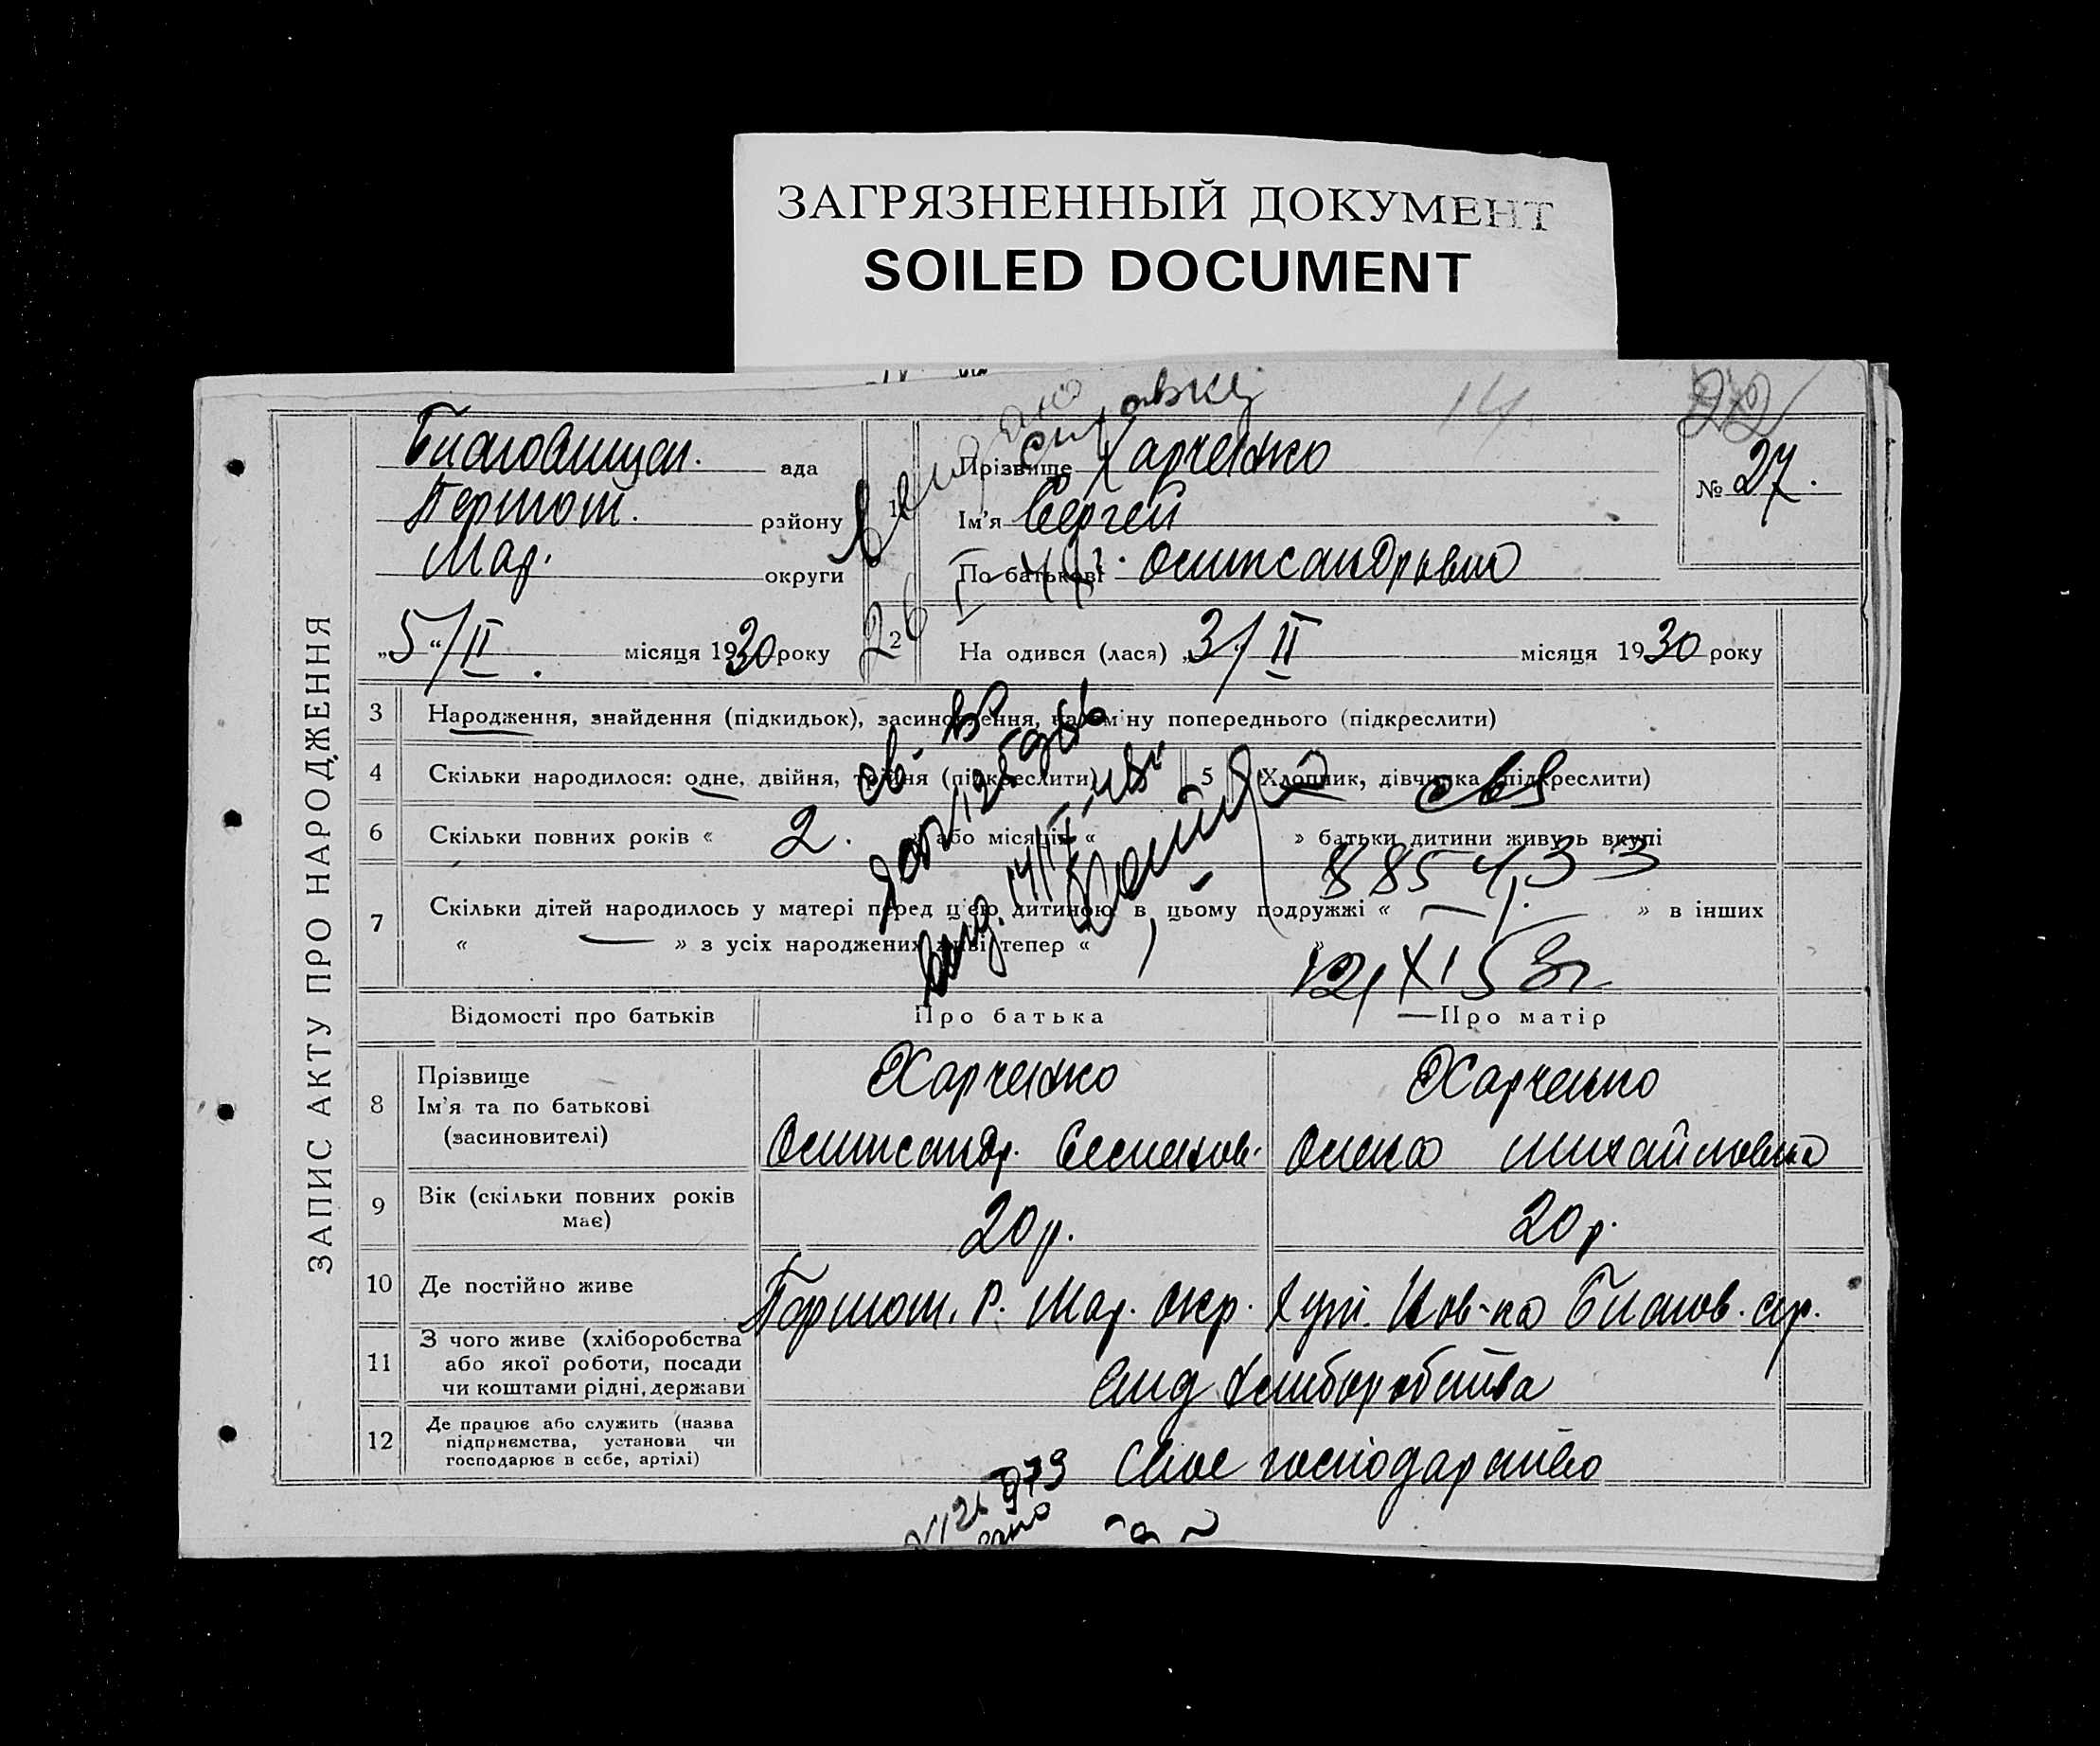 ЗАГРЯЗНЕННЫЙ ДОКУМЕНТ
SOILED DOCUMENT
14.
22
ЗАПИС АКТУ ПРО НАРОДЖЕННЯ
ада
Першот. району
Мар. округи
1
Прізвище Харченко
Ім'я Сергей
По батькові Олександрович
№ 27.
„5“/II місяця 1930 року
2
На одився (лася) „3/II місяця 1930 року
3 Народження, знайдення (підкидьок), засиновлення, на зміну попереднього (підкреслити)
4 Скільки народилося: одне, двійня, трійня (підкреслити)
5 Хлопчик, дівчинка (підкреслити)
6 Скільки повних років « 2. » або місяців « » батьки дитини живуть вкупі
7 Скільки дітей народилось у матері перед ц'єю дитиною: в цьому подружжі « — » в інших
« — » з усіх народжених живі тепер « »
885433
12/XI 53г
Відомості про батьків
Про батька
Про матір
8 Прізвище
Ім'я та по батькові
(засиновителі)
Харченко
Олександр.
Харченко
Олена Михайловна
9 Вік (скільки повних років
має)
20 р.
20 р.
10 Де постійно живе
Першот. Р. Мар. окр. Хут. Нов-ка
11 З чого живе (хліборобства
або якої роботи, посади
чи коштами рідні, держави
від хліборобства
12 Де працює або служить (назва
підприємства, установи чи
господарює в себе, артілі)
Своє господарство